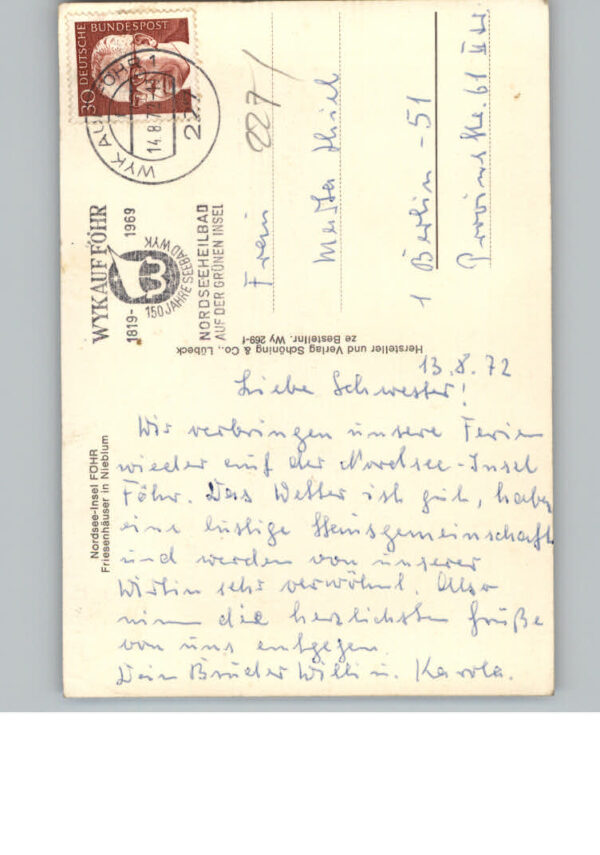 30 DEUTSCHE BUNDESPOST
WYK AUF FÖHR 1
14.8.72
227
WYK AUF FÖHR
1819-1969
150 JAHRE SEEBAD WYK
NORDSEEHEILBAD
AUF DER GRÜNEN INSEL
227/
Frau
Meta
1 Berlin-51
Provinzstr. 61
Hersteller und Verlag Schöning & Co., Lübeck
ze Bestellnr. Wy 269-f
Nordsee-Insel FÖHR
Friesenhäuser in Nieblum
13.8.72
Liebe Schwester!
Wir verbringen unsere Ferien
wieder auf der Nordsee-Insel
Föhr. Das Wetter ist gut, haben
eine lustige Hausgemeinschaft
und werden von unserer
Wirtin sehr verwöhnt. Also
nimm die herzlichsten Grüße
von uns entgegen.
Dein Bruder Willi u. Karola.